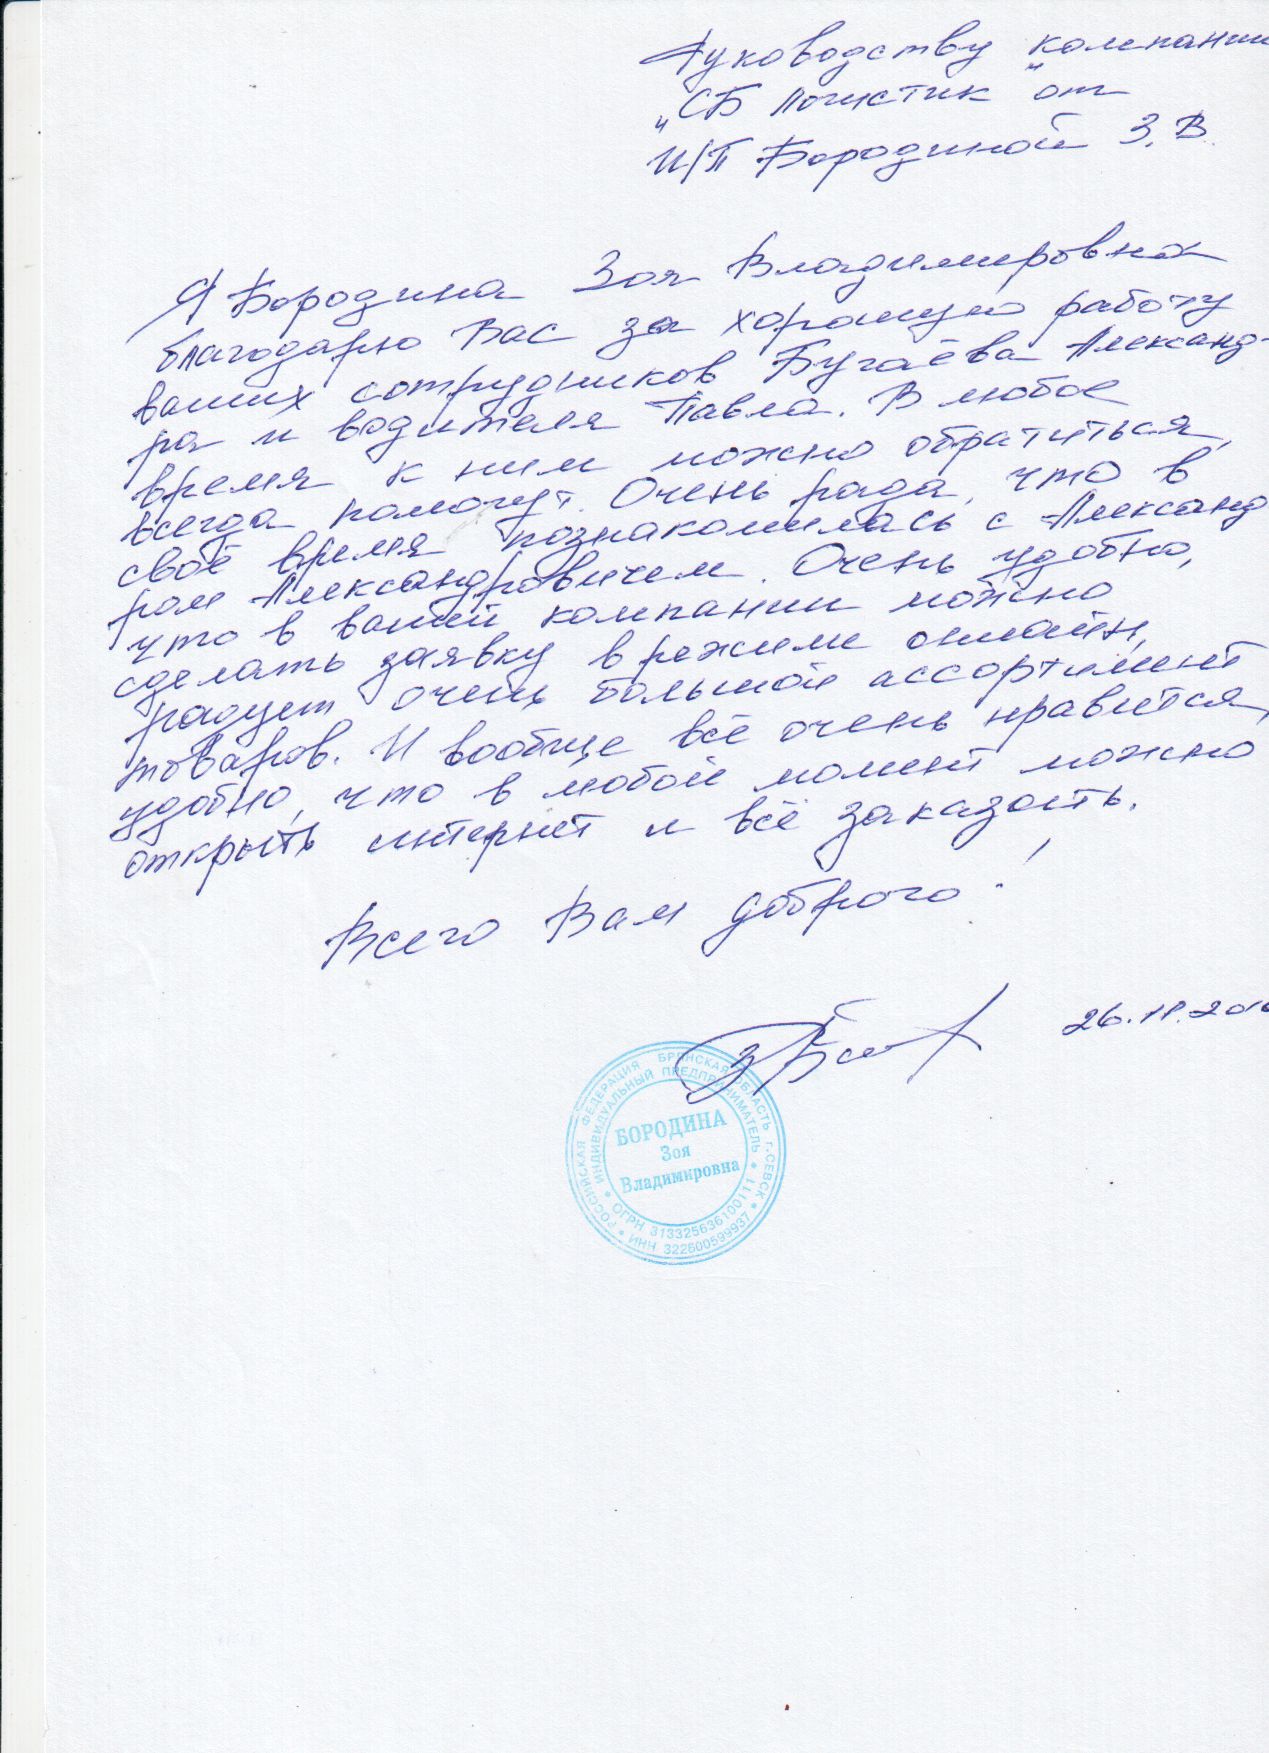 Руководству компании
„СБ Логистик" от
И/П Бородиной З. В.
Я Бородина Зоя Владимировна
благодарю Вас за хорошую работу
ваших сотрудников Бугаёва Александ-
ра и водителя Павла. В любое
время к ним можно обратиться,
всегда помогут. Очень рада, что в
своё время познакомилась с Александ
ром Александровичем. Очень удобно,
что в вашей компании можно
сделать заявку в режиме онлайн,
радует очень большой ассортимент
товаров. И вообще всё очень нравится,
удобно, что в любой момент можно
открыть интернет и всё заказать.
Всего Вам доброго!
РОССИЙСКАЯ ФЕДЕРАЦИЯ БРЯНСКАЯ ОБЛАСТЬ г.СЕВСК
ИНДИВИДУАЛЬНЫЙ ПРЕДПРИНИМАТЕЛЬ
БОРОДИНА
Зоя
Владимировна
ОГРН 313325636100111
ИНН 322600599937